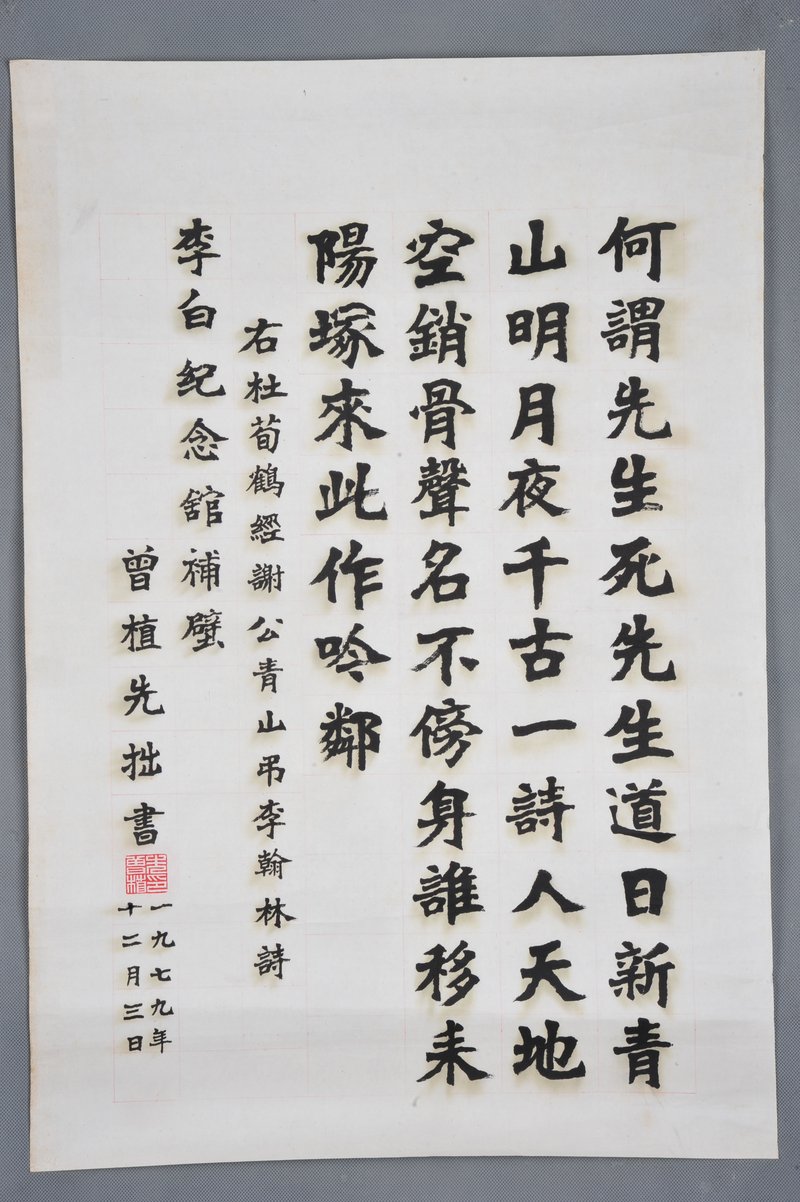 何謂先生死先生道日新青
山明月夜千古一詩人天地
空銷骨聲名不傍身誰移耒
陽塚來此作吟鄰
右杜荀鶴經謝公青山弔李翰林詩
李白纪念館補壁
曾植先拙書
一九七九年
十二月三日